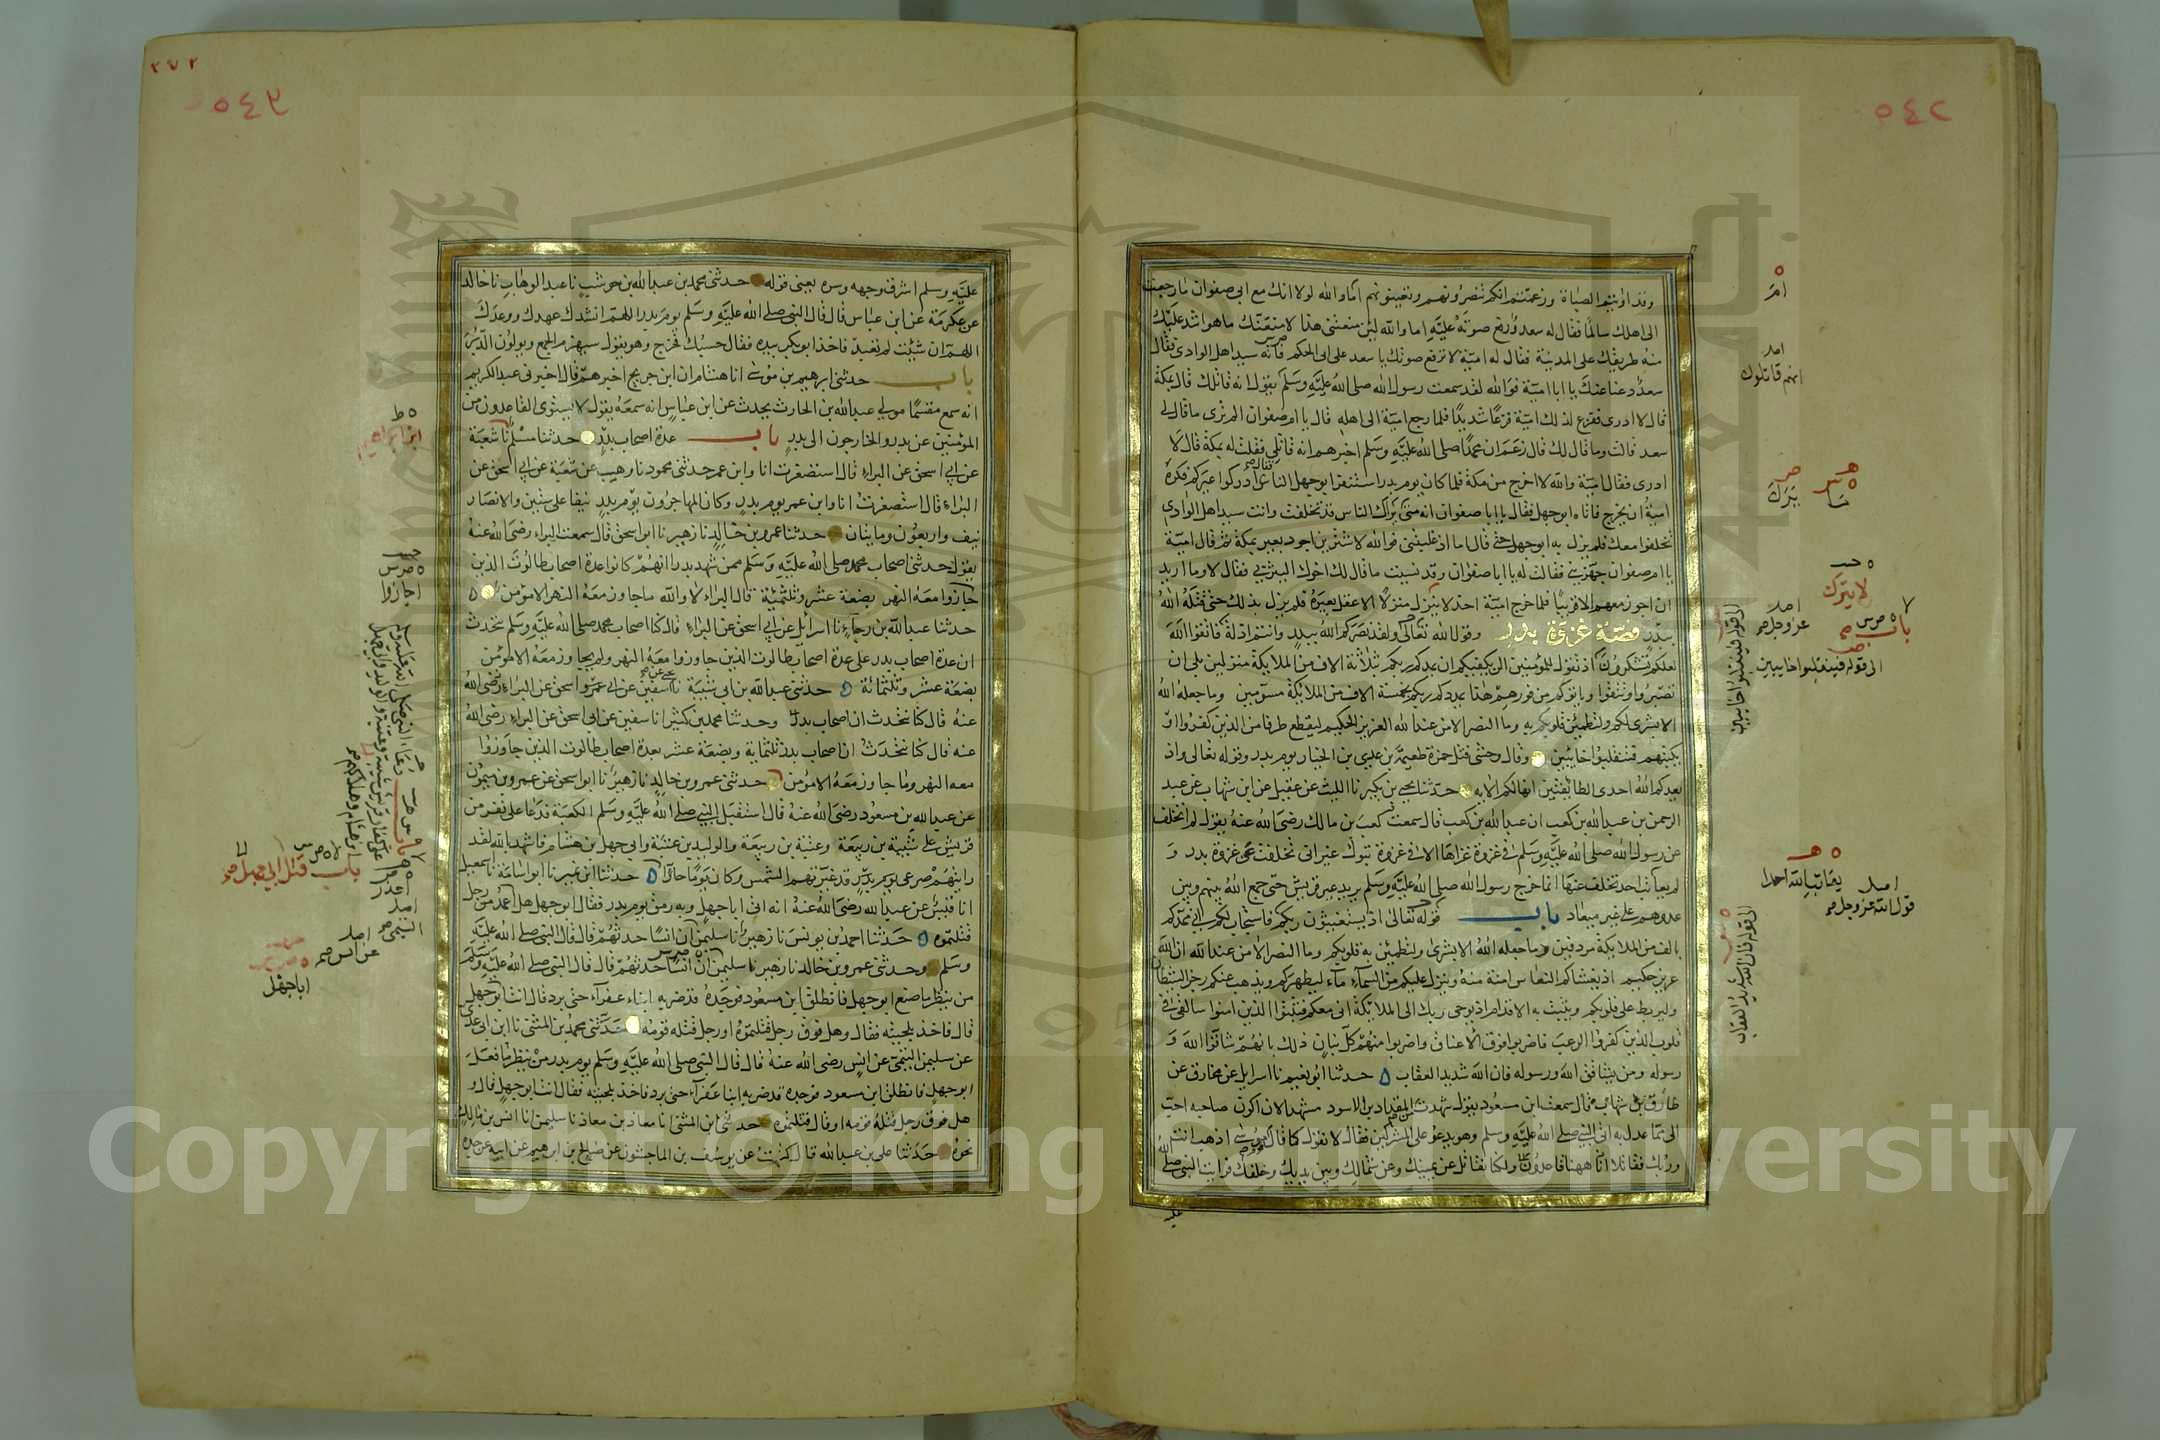 ٥٤٢
وقد اويتم الصباة وزعمتم انكم تنصرونهم وتعينونهم اما والله لولا انك مع ابي صفوان ما رجعت
الى اهلك سالما فقال له سعد ورفع صوته عليه اما والله لئن منعتني هذا لامنعنك ما هو اشد عليك
منه طريقك على المدينة فقال له امية لا ترفع صوتك يا سعد على ابي الحكم فانه سيد اهل الوادي فقال
سعد دعنا عنك يا ابا امية فوالله لقد سمعت رسول الله صلى الله عليه وسلم يقول انه قاتلك قال بمكة
قال لا ادري ففزع لذلك امية فزعا شديدا فلما رجع امية الى اهله قال يا ام صفوان الم تري ما قال لي
سعد قالت وما قال لك قال زعم ان محمدا صلى الله عليه وسلم اخبرهم انه قاتلي فقلت له بمكة قال لا
ادري فقال امية والله لا اخرج من مكة فلما كان يوم بدر استنفر ابو جهل الناس قال ادركوا عيركم فكره
امية ان يخرج فاتاه ابو جهل فقال يا ابا صفوان انه متى يراك الناس قد تخلفت وانت سيد اهل الوادي
تخلفوا معك فلم يزل به ابو جهل حتى قال اما اذ غلبتني فوالله لاشترين اجود بعير بمكة ثم قال امية
يا ام صفوان جهزيني فقالت له يا ابا صفوان وقد نسيت ما قال لك اخوك اليثربي فقال لا وما اريد
ان اجوز معهم الا قريبا فلما خرج امية اخذ لا ينزل منزلا الا عقل بعيره فلم يزل بذلك حتى قتله الله
ببدر قصة غزوة بدر وقول الله تعالى ولقد نصركم الله ببدر وانتم اذلة فاتقوا الله
لعلكم تشكرون اذ تقول للمؤمنين الن يكفيكم ان يمدكم ربكم بثلاثة الاف من الملايكة منزلين بلى ان
تصبروا وتتقوا وياتوكم من فورهم هذا يمددكم ربكم بخمسة الاف من الملايكة مسومين وما جعله الله
الا بشرى لكم ولتطمئن قلوبكم به وما النصر الا من عند الله العزيز الحكيم ليقطع طرفا من الذين كفروا او
يكبتهم فينقلبوا خايبين وقال وحشي قتل حمزة طعيمة بن عدي بن الخيار يوم بدر وقوله تعالى واذ
يعدكم الله احدى الطايفتين انها لكم الايه حدثنا يحيى بن بكير نا الليث عن عقيل عن ابن شهاب عن عبد
الرحمن بن عبد الله بن كعب ان عبد الله بن كعب قال سمعت كعب بن مالك رضي الله عنه يقول لم اتخلف
عن رسول الله صلى الله عليه وسلم في غزوة غزاها الا في غزوة تبوك غير اني تخلفت عن غزوة بدر و
لم يعاتب احد تخلف عنها انما خرج رسول الله صلى الله عليه وسلم يريد عير قريش حتى جمع الله بينهم وبين
عدوهم على غير ميعاد باب قوله تعالى اذ تستغيثون ربكم فاستجاب لكم اني ممدكم
بالف من الملايكة مردفين وما جعله الله الا بشرى ولتطمئن به قلوبكم وما النصر الا من عند الله ان الله
عزيز حكيم اذ يغشاكم النعاس امنة منه وينزل عليكم من السماء ماء ليطهركم به ويذهب عنكم رجز الشيطان
وليربط على قلوبكم ويثبت به الاقدام اذ يوحي ربك الى الملايكة اني معكم فثبتوا الذين امنوا سالقي في
قلوب الذين كفروا الرعب فاضربوا فوق الاعناق واضربوا منهم كل بنان ذلك بانهم شاقوا الله و
رسوله ومن يشاقق الله ورسوله فان الله شديد العقاب حدثنا ابو نعيم نا اسرايل عن مخارق عن
طارق بن شهاب قال سمعت ابن مسعود يقول شهدت من المقداد بن الاسود مشهدا لان اكون صاحبه احب
الي مما عدل به اتى النبي صلى الله عليه وسلم وهو يدعو على المشركين فقال لا نقول كما قال قوم موسى اذهب انت
وربك فقاتلا انا ههنا قاعدون ولكنا نقاتل عن يمينك وعن شمالك وبين يديك وخلفك فرايت النبي صلى الله
عليه
امر
اصل
انهم قاتلوك
يترك
لا يترك
اصل
عز وجل
باب
الى قوله فينقلبوا خايبين
الى قوله فينقلبوا خايبين
يعاتب الله احدا
اصل
قول الله عز وجل
الى قوله فان الله شديد العقاب
٢٧٢
٥٤٣
عليه وسلم اشرق وجهه وسره يعني قوله حدثني محمد بن عبد الله بن حوشب نا عبد الوهاب نا خالد
عن عكرمة عن ابن عباس قال قال النبي صلى الله عليه وسلم يوم بدر اللهم انشدك عهدك ووعدك
اللهم ان شئت لم تعبد فاخذ ابو بكر بيده فقال حسبك فخرج وهو يقول سيهزم الجمع ويولون الدبر
باب حدثني ابرهيم بن موسى انا هشام ان ابن جريج اخبرهم قال اخبرني عبد الكريم
انه سمع مقسما مولى عبد الله بن الحارث يحدث عن ابن عباس انه سمعه يقول لا يستوي القاعدون من
المؤمنين عن بدر والخارجون الى بدر باب عدة اصحاب بدر حدثنا مسلم نا شعبة
عن ابي اسحق عن البراء قال استصغرت انا وابن عمر حدثني محمود نا وهب عن شعبة عن ابي اسحق عن
البراء قال استصغرت انا وابن عمر يوم بدر وكان المهاجرون يوم بدر نيفا على ستين والانصار
نيف واربعون ومايتان حدثنا عمرو بن خالد نا زهير نا ابو اسحق قال سمعت البراء رضي الله عنه
يقول حدثني اصحاب محمد صلى الله عليه وسلم ممن شهد بدرا انهم كانوا عدة اصحاب طالوت الذين
جازوا معه النهر بضعة عشر وثلثمئة قال البراء لا والله ما جاوز معه النهر الا مؤمن
حدثنا عبد الله بن رجاء نا اسرايل عن ابي اسحق عن البراء قال كنا اصحاب محمد صلى الله عليه وسلم نتحدث
ان عدة اصحاب بدر على عدة اصحاب طالوت الذين جاوزوا معه النهر ولم يجاوز معه الا مؤمن
بضعة عشر وثلثمائة حدثني عبد الله بن ابي شيبة نا سفين عن ابي اسحق عن البراء رضي الله
عنه قال كنا نتحدث ان اصحاب بدر وحدثنا محمد بن كثير انا سفين عن ابي اسحق عن البراء رضي الله
عنه قال كنا نتحدث ان اصحاب بدر ثلثماية وبضعة عشر بعدة اصحاب طالوت الذين جاوزوا
معه النهر وما جاوز معه الا مؤمن حدثني عمرو بن خالد نا زهير نا ابو اسحق عن عمرو بن ميمون
عن عبد الله بن مسعود رضي الله عنه قال استقبل النبي صلى الله عليه وسلم الكعبة فدعا على نفر من
قريش على شيبة بن ربيعة وعتبة بن ربيعة والوليد بن عتبة وابو جهل بن هشام فاشهد بالله لقد
رايتهم صرعى يوم بدر قد غيرتهم الشمس وكان يوما حارا حدثنا ابن نمير نا ابو اسامة نا اسمعيل
انا قيس عن عبد الله رضي الله عنه انه اتى ابا جهل وبه رمق يوم بدر فقال ابو جهل هل اعمد من رجل
قتلتموه حدثنا احمد بن يونس نا زهير نا سليمن ان انسا حدثهم قال قال النبي صلى الله عليه
وسلم وحدثني عمرو بن خالد نا زهير نا سليمن ان انسا حدثهم قال قال النبي صلى الله عليه وسلم
من ينظر ما صنع ابو جهل فانطلق ابن مسعود فوجده قد ضربه ابناء عفراء حتى برد قال انت ابو جهل
قال فاخذ بلحيته فقال وهل فوق رجل قتلتموه او رجل قتله قومه حدثني محمد بن المثنى نا ابن ابي عدي
عن سليمن التيمي عن انس رضي الله عنه قال قال النبي صلى الله عليه وسلم يوم بدر من ينظر ما فعل
ابو جهل فانطلق ابن مسعود فوجده قد ضربه ابنا عفراء حتى برد فاخذ بلحيته فقال انت ابو جهل قال و
هل فوق رجل قتله قومه او قال قتلتموه حدثني ابن المثنى انا معاذ بن معاذ نا سليمن انا انس بن مالك
نحوه حدثنا علي بن عبد الله قال كتبت عن يوسف بن الماجشون عن صالح بن ابرهيم عن ابيه عن جده
اجازوا
باب دعاء النبي صلى الله عليه وسلم
على كفار قريش شيبة وعتبة والوليد وابي جهل
ابن هشام وهلاكهم
باب قتل ابي جهل
اعذر
اصل
التيمي
اصل
عن انس
ابا جهل
Copyright © King Saud University